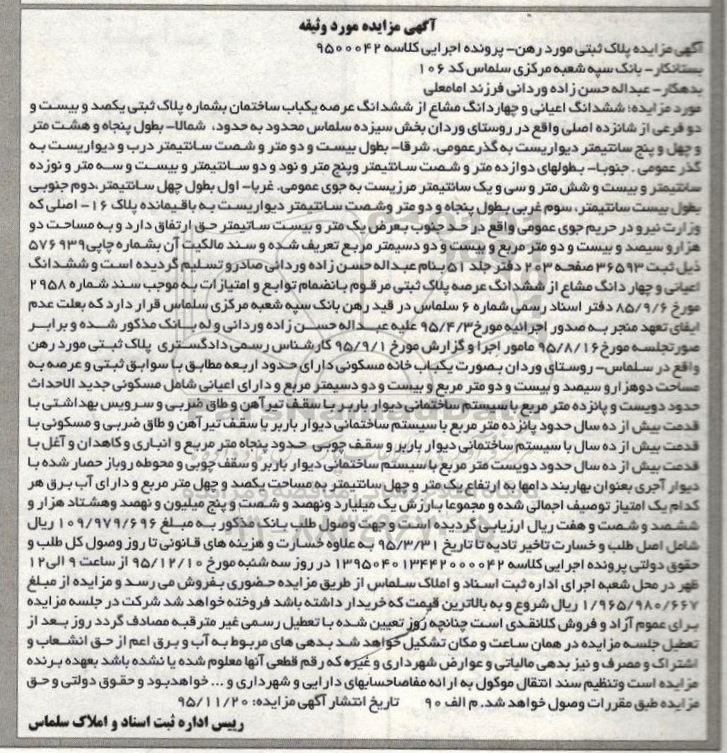 آگهی مزایده مورد وثیقه
آگهی مزایده پلاک ثبتی مورد رهن- پرونده اجرایی کلاسه ۹۵۰۰۰۴۲
بستانکار- بانک سپه شعبه مرکزی سلماس کد ۱۰۶
بدهکار- عبداله حسن زاده وردانی فرزند امامعلی
مورد مزایده: ششدانگ اعیانی و چهاردانگ مشاع از ششدانگ عرصه یکباب ساختمان بشماره پلاک ثبتی یکصد و بیست و
دو فرعی از شانزده اصلی واقع در روستای وردان بخش سیزده سلماس محدود به حدود، شمالا- بطول پنجاه و هشت متر
و چهل و پنج سانتیمتر دیواریست به گذرعمومی. شرقا- بطول بیست و دو متر و شصت سانتیمتر درب و دیواریست به
گذر عمومی. جنوبا- بطولهای دوازده متر و شصت سانتیمتر وپنج متر و نود و دو سانتیمتر و بیست و سه متر و نوزده
سانتیمتر و بیست و شش متر و سی و یک سانتیمتر مرزیست به جوی عمومی. غربا- اول بطول چهل سانتیمتر،دوم جنوبی
بطول بیست سانتیمتر، سوم غربی بطول پنجاه و دو متر وشصت سانتیمتر دیواریست به باقیمانده پلاک ۱۶- اصلی که
وزارت نیرو در حریم جوی عمومی واقع در حد جنوب بعرض یک متر و بیست ساتیمتر حق ارتفاق دارد و به مساحت دو
هزارو سیصد و بیست و دو متر مربع و بیست و دو دسیمتر مربع تعریف شده و سند مالکیت آن بشماره چاپی۵۷۶۹۳۹
ذیل ثبت ۳۶۵۹۳ صفحه ۲۰۳ دفتر جلد ۵۱ بنام عبداله حسن زاده وردانی صادرو تسلیم گردیده است و ششدانگ
اعیانی و چهار دانگ مشاع از ششدانگ عرصه پلاک ثبتی مرقوم بانضمام توابع و امتیازات به موجب سند شماره ۲۹۵۸
مورخ ۸۵/۹/۶ دفتر اسناد رسمی شماره ۶ سلماس در قید رهن بانک سپه شعبه مرکزی سلماس قرار دارد که بعلت عدم
ایفای تعهد منجر به صدور اجرائیه مورخ۹۵/۴/۳ علیه عبداله حسن زاده وردانی و له بانک مذکور شده و برابر
صورتجلسه مورخ۹۵/۸/۱۶ مامور اجرا و گزارش مورخ ۹۵/۹/۱ کارشناس رسمی دادگستری پلاک ثبتی مورد رهن
واقع در سلماس- روستای وردان بصورت یکباب خانه مسکونی دارای حدود اربعه مطابق با سوابق ثبتی و عرصه به
مساحت دوهزارو سیصد و بیست و دو متر مربع و بیست و دو دسیمتر مربع و دارای اعیانی شامل مسکونی جدید الاحداث
حدود دویست و پانزده متر مربع با سیستم ساختمانی دیوار باربر با سقف تیرآهن و طاق ضربی و سرویس بهداشتی با
قدمت بیش از ده سال حدود پانزده متر مربع با سیستم ساختمانی دیوار باربر با سقف تیرآهن و طاق ضربی و مسکونی با
قدمت بیش از ده سال با سیستم ساختمانی دیوار باربر و سقف چوبی حدود پنجاه متر مربع و انباری و کاهدان و آغل با
قدمت بیش از ده سال حدود دویست متر مربع با سیستم ساختمانی دیوار باربر و سقف چوبی و محوطه روباز حصار شده با
دیوار آجری بعنوان بهاربند دامها به ارتفاع یک متر و چهل سانتیمتر به مساحت یکصد و چهل متر مربع و دارای آب برق هر
کدام یک امتیاز توصیف اجمالی شده و مجموعا بارزش یک میلیارد ونهصد و شصت و پنج میلیون و نهصد وهشتاد هزار و
ششصد و شصت و هفت ریال ارزیابی گردیده است و جهت وصول طلب بانک مذکور به مبلغ ۱۰۹/۹۷۹/۶۹۶ ریال
شامل اصل طلب و خسارت تاخیر تادیه تا تاریخ ۹۵/۳/۳۱ به علاوه خسارت و هزینه های قانونی تا روز وصول کل طلب و
حقوق دولتی پرونده اجرایی کلاسه ۱۳۹۵۰۴۰۱۳۴۴۲۰۰۰۰۴۲ در روز سه شنبه مورخ ۹۵/۱۲/۱۰ از ساعت ۹ الی۱۲
ظهر در محل شعبه اجرای اداره ثبت اسناد و املاک سلماس از طریق مزایده حضوری بفروش می رسد و مزایده از مبلغ
۱/۹۶۵/۹۸۰/۶۶۷ ریال شروع و به بالاترین قیمت که خریدار داشته باشد فروخته خواهد شد شرکت در جلسه مزایده
برای عموم آزاد و فروش کلانقدی است چنانچه روز تعیین شده با تعطیل رسمی غیر مترقبه مصادف گردد روز بعد از
تعطیل جلسه مزایده در همان ساعت و مکان تشکیل خواهد شد بدهی های مربوط به آب و برق اعم از حق انشعاب و
اشتراک و مصرف و نیز بدهی مالیاتی و عوارض شهرداری و غیره که رقم قطعی آنها معلوم شده یا نشده باشد بعهده برنده
مزایده است وتنظیم سند انتقال موکول به ارائه مفاصاحسابهای دارایی و شهرداری و ... خواهدبود و حقوق دولتی و حق
مزایده طبق مقررات وصول خواهد شد. م الف ۹۰ تاریخ انتشار آگهی مزایده: ۹۵/۱۱/۲۰
رییس اداره ثبت اسناد و املاک سلماس